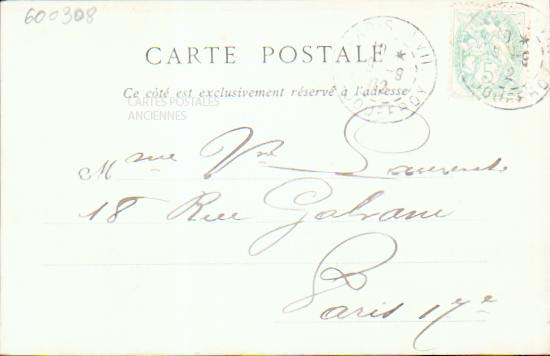 600308
CARTE POSTALE
Ce côté est exclusivement réservé à l'adresse
CARTES POSTALES
ANCIENNES
5
Mme Vve Laurent
18 Rue Galvani
Paris 17e